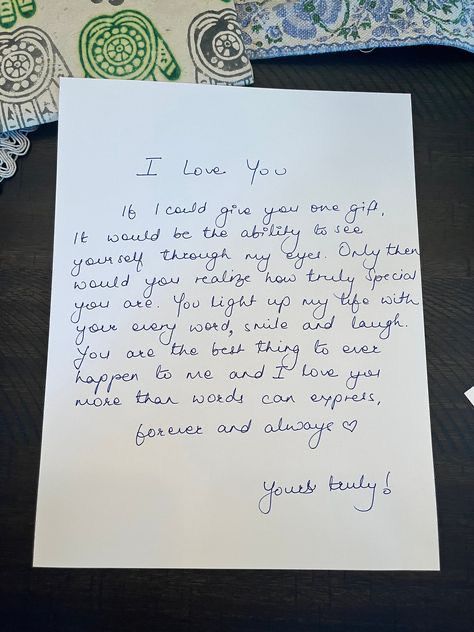 I Love You
If I could give you one gift,
It would be the ability to see
yourself through my eyes. Only then
would you realize how truly special
you are. You light up my life with
your every word, smile and laugh.
You are the best thing to ever
happen to me and I love you
more than words can express,
forever and always ♡
Yours truly!